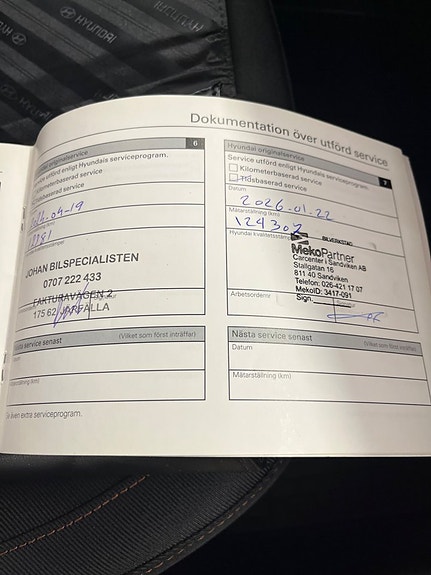 HYUNDAI
HYUNDAI
Dokumentation över utförd service
6
originalservice
utförd enligt Hyundais serviceprogram.
Kilometerbaserad service
baserad service
04-19
JOHAN BILSPECIALISTEN
0707 222 433
FAKTURAVÄGEN 2
175 62 JÄRFÄLLA
Nästa service senast (Vilket som först inträffar)
Datum
Mätarställning (km)
Se även extra serviceprogram.
Hyundai originalservice 7
Service utförd enligt Hyundais serviceprogram:
Kilometerbaserad service
Tidsbaserad service
Datum
2026-01-22
Mätarställning (km)
124307
Hyundai kvalitetsstämpel
BILVERKSTAD
MekoPartner
Carcenter i Sandviken AB
Stallgatan 16
811 40 Sandviken
Telefon: 026-421 17 07
MekoID: 3417-091
Sign.
Arbetsordernr
Nästa service senast (Vilket som först inträffar)
Datum
Mätarställning (km)